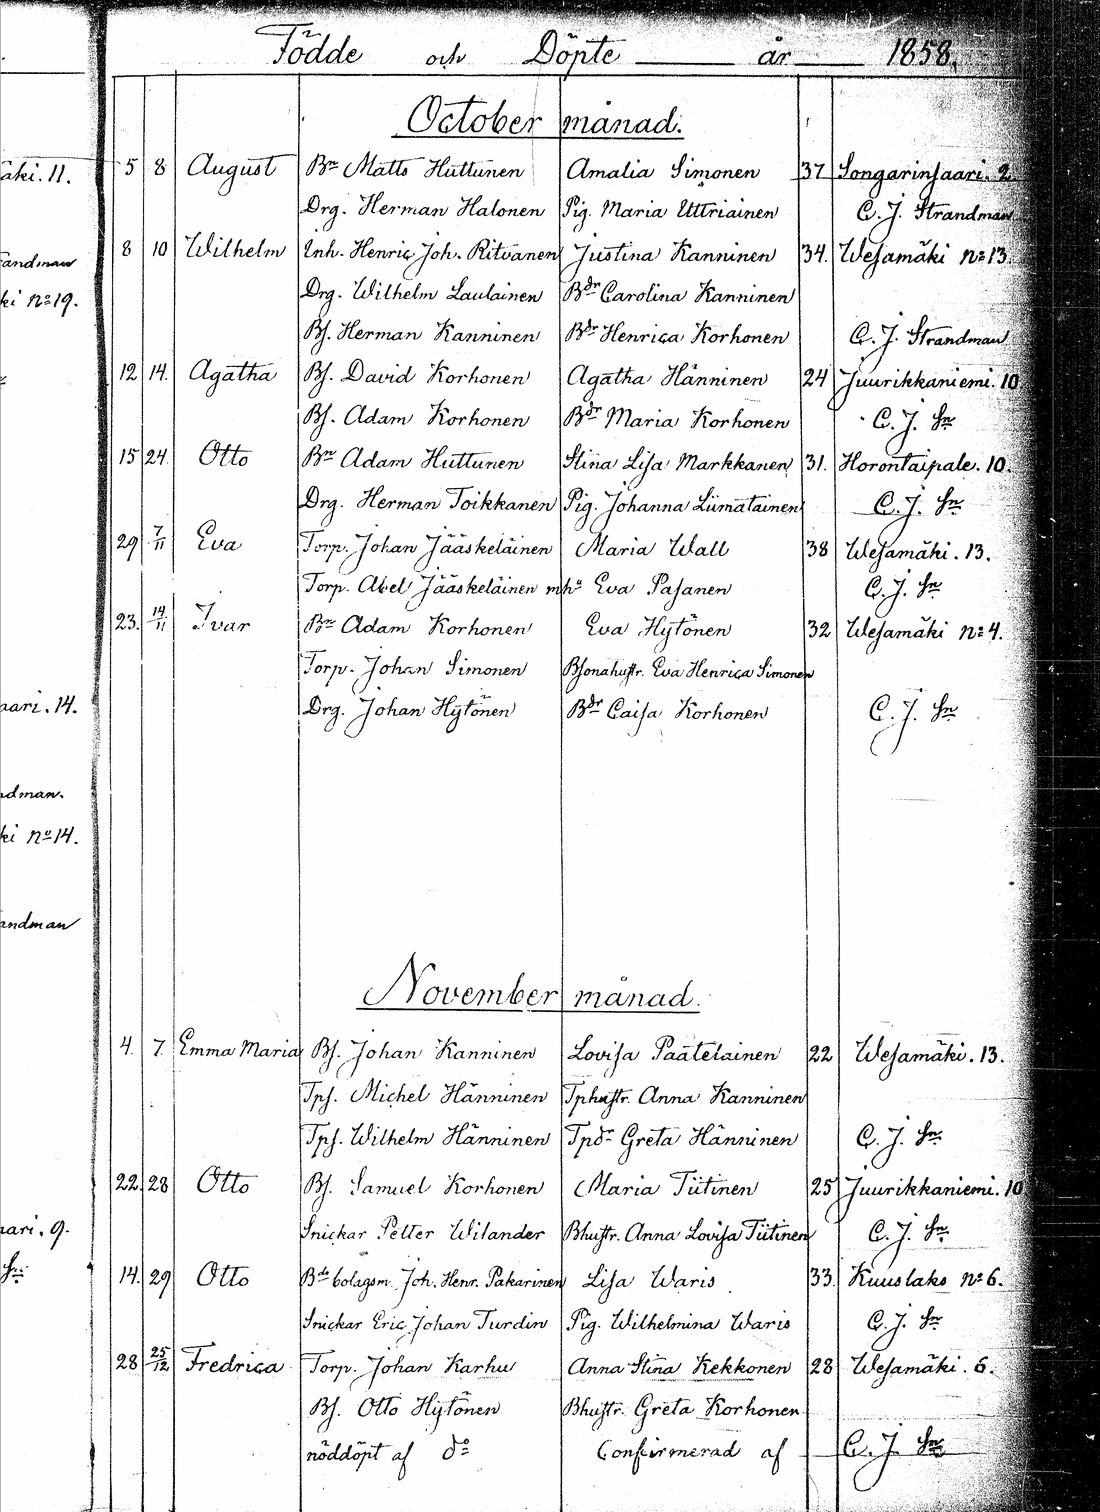 Födde och Döpte år 1858.
October månad.
äki. 11. 5 8 August Bn Matts Huttunen Amalia Simonen 37 Songarinsaari. 2
Drg. Herman Halonen Pig. Maria Uttriainen C. J. Strandman
andman 8 10 Wilhelm Inh. Henric Joh. Ritvanen Justina Kanninen 34. Wesamäki No 13.
ki No 19. Drg. Wilhelm Laulainen Bdr Carolina Kanninen
Bs. Herman Kanninen Bdr Henrica Korhonen C. J. Strandman
12 14. Agatha Bs. David Korhonen Agatha Hänninen 24 Juurikkaniemi. 10
Bs. Adam Korhonen Bdr Maria Korhonen C. J. Sn
15 24. Otto Bn Adam Huttunen Stina Lisa Markkanen 31. Horontaipale. 10.
Drg. Herman Toikkanen Pig. Johanna Liimatainen C. J. Sn
29 7/11 Eva Torp. Johan Jääskeläinen Maria Wall 38 Wesamäki. 13.
Torp. Abel Jääskeläinen m hu Eva Pasanen C. J. Sn
23. 14/11 Ivar Bn Adam Korhonen Eva Hytönen 32 Wesamäki No 4.
Torp. Johan Simonen Bsonahustr. Eva Henrica Simonen
aari. 14. Drg. Johan Hytönen Bdr Caisa Korhonen C. J. Sn
ndman.
ki No 14.
andman
November månad.
4. 7. Emma Maria Bs. Johan Kanninen Lovisa Päätelainen 22 Wesamäki. 13.
Tps. Michel Hänninen Tphustr. Anna Kanninen
Tps. Wilhelm Hänninen Tpdr Greta Hänninen C. J. Sn
22. 28 Otto Bs. Samuel Korhonen Maria Tiitinen 25 Juurikkaniemi. 10
aari. 9. Snickar Petter Wilander Bhustr. Anna Lovisa Tiitinen C. J. Sn
Sn 14. 29 Otto Bde bolagsm. Joh. Henr. Pakarinen Lisa Waris 33. Kuuslaks No 6.
Snickar Eric Johan Turdin Pig. Wilhelmina Waris C. J. Sn
28 25/12 Fredrica Torp. Johan Karhu Anna Stina Kekkonen 28 Wesamäki. 6.
Bs. Otto Hytönen Bhustr. Greta Korhonen
nöddöpt af do Confirmerad af C. J. Sn